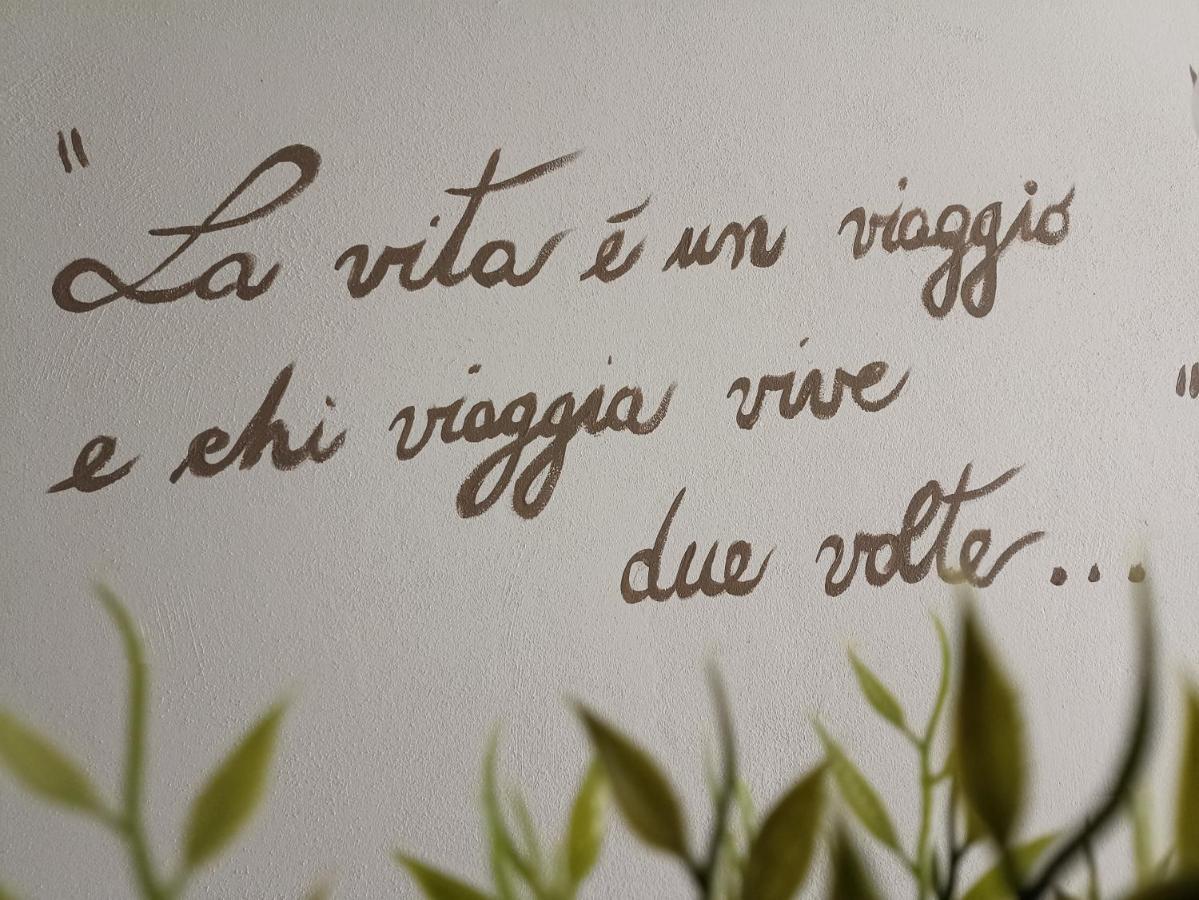 "La vita é un viaggio
e chi viaggia vive "
due volte...